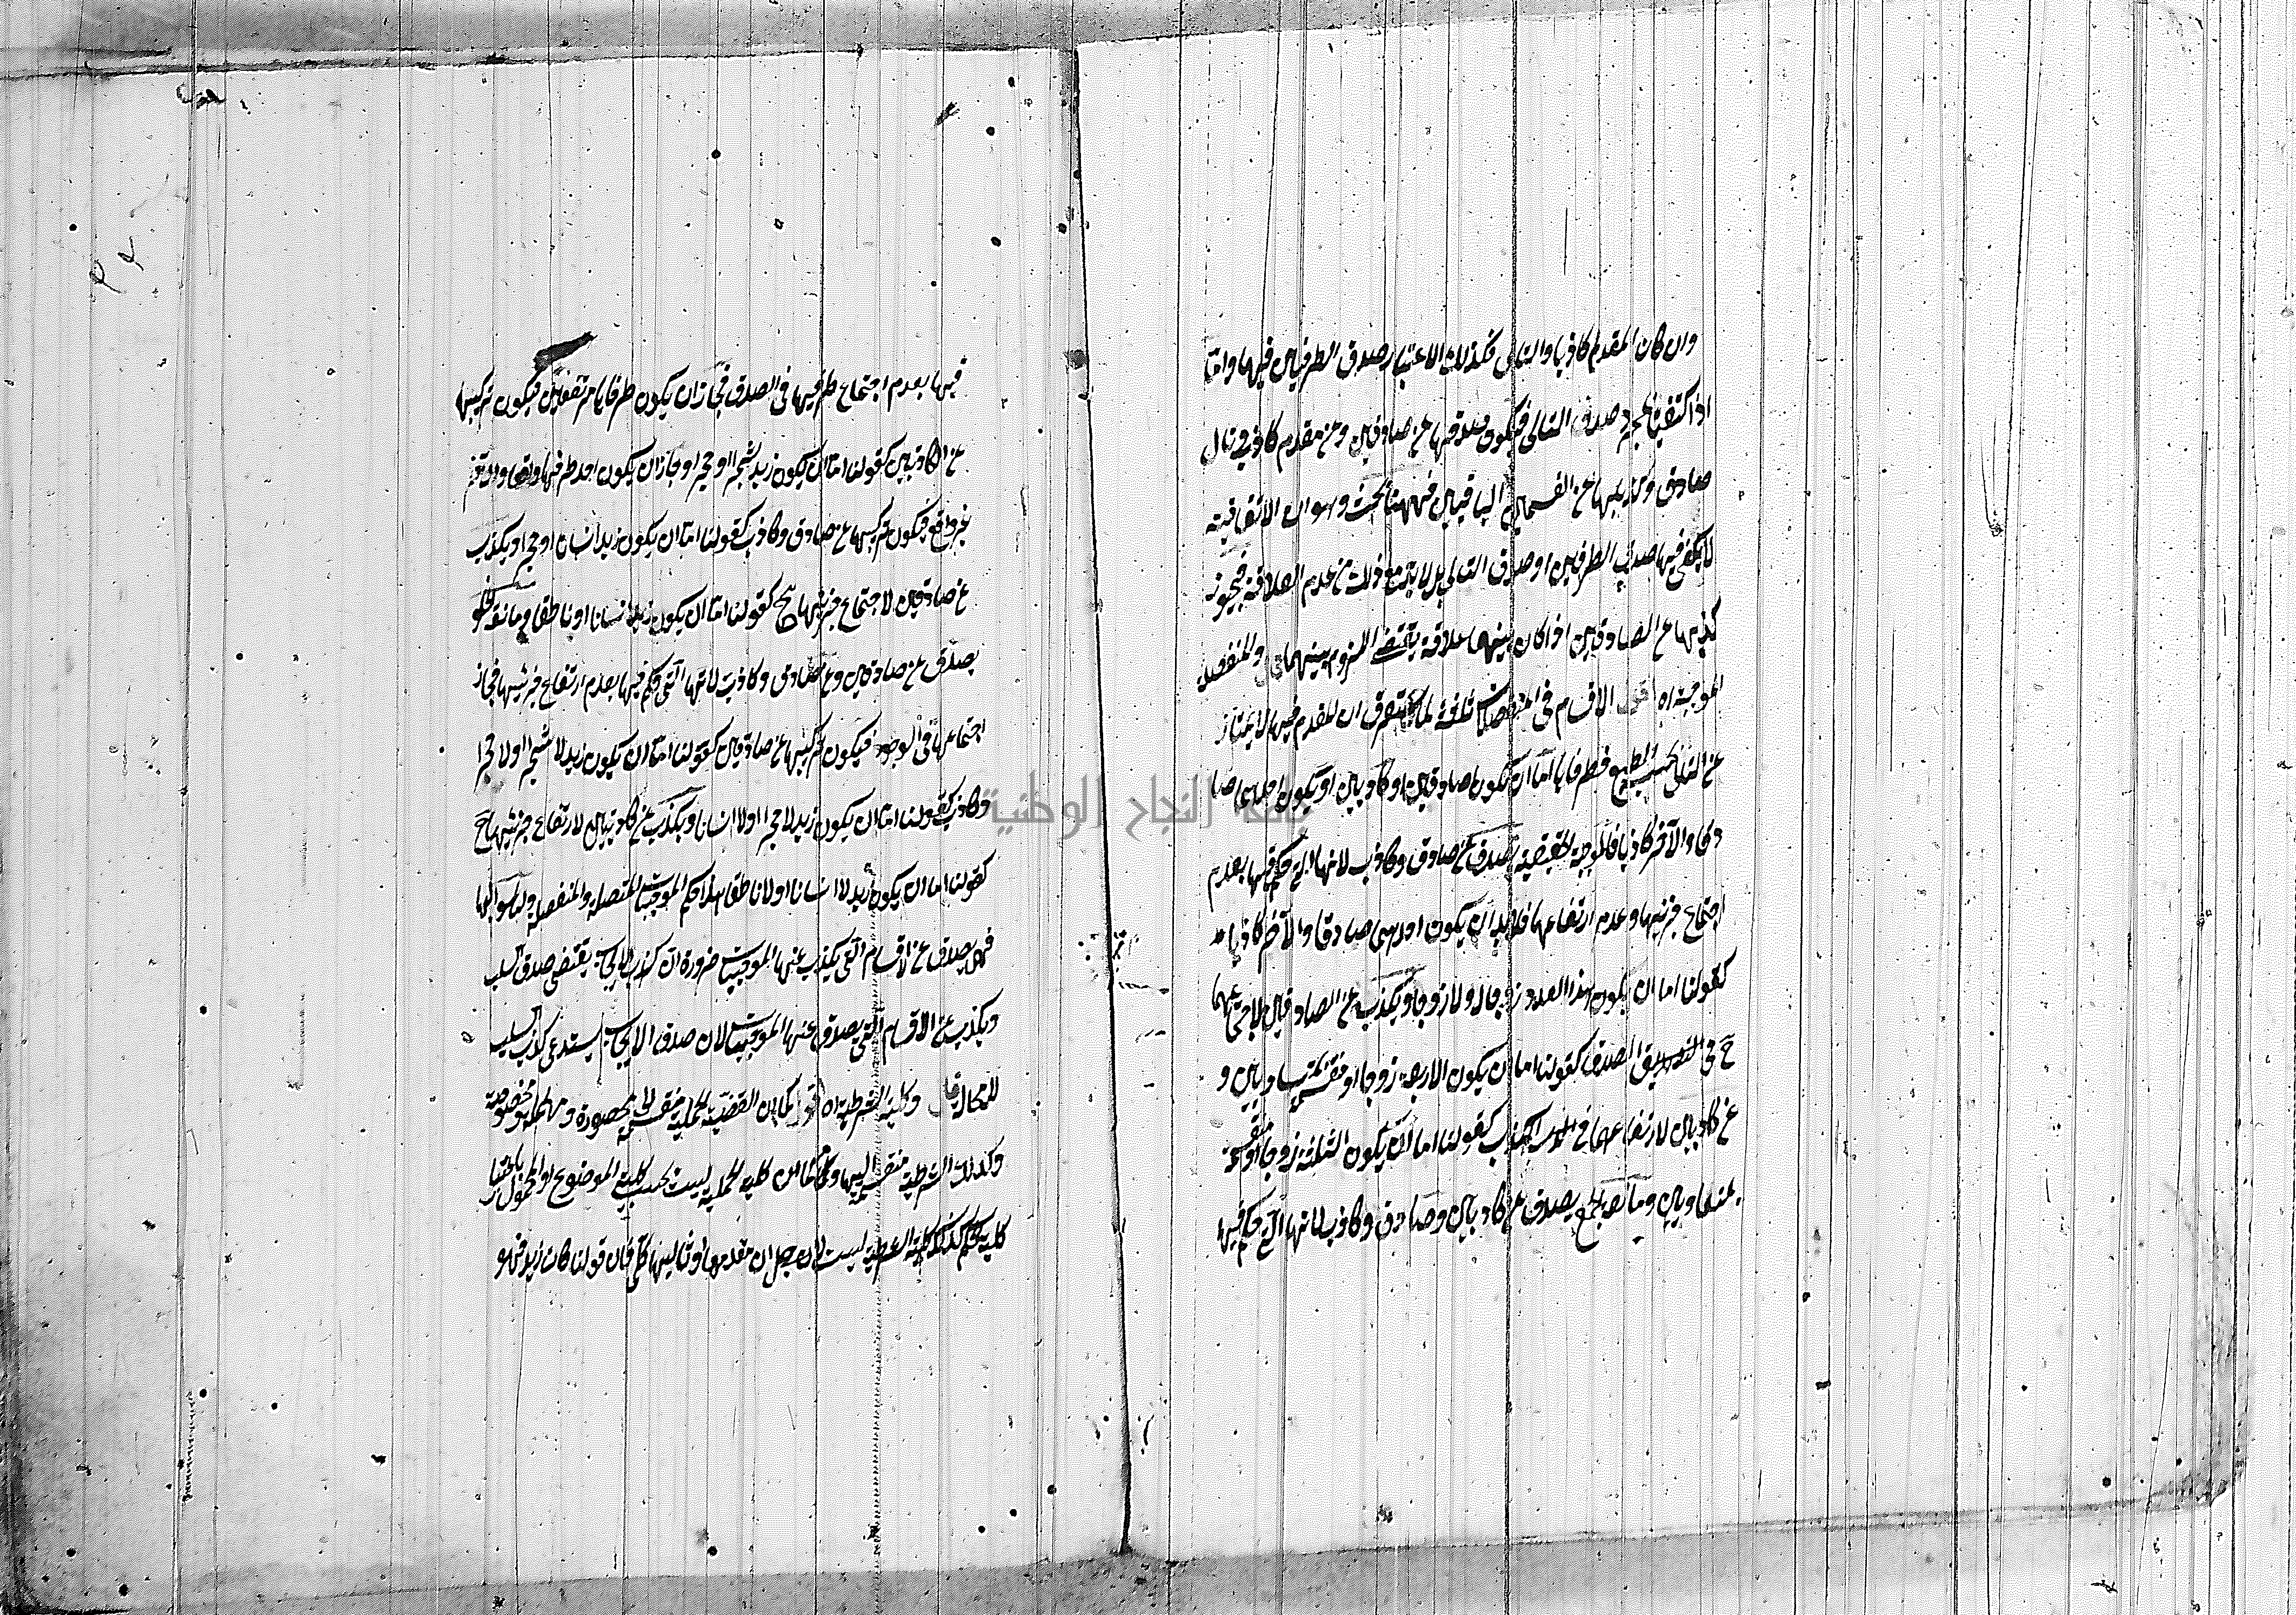 وان كان المقدم كاذبا والتالى فكذلك الاعتبار صدق الطرفين فيها واما
اذا اكتفينا بمجرد صدق التالى فيكون صدقها عن صادقين وعن مقدم كاذب وتال
صادق وكذبها عن القسمين الباقيين فههنا بحث وهو ان الاتفاقية
لا يكفى فيها صدق الطرفين او صدق التالى بل لا بد مع ذلك من عدم العلاقة فيجوز
كذبها عن الصادقين اذا كان بينهما علاقة يقتضى الملزوم بينهما قال والمنفصلة
الموجبة اه اقول الاقسام فى المنفصلات ثلثة لما ستعرف ان المقدم فيها لا يمتاز
عن التالى بحسب الطبع فطرفاها اما ان يكونا صادقين او كاذبين او يكون احدهما صا
دقا والآخر كاذبا فالموجبة الحقيقية تصدق عن صادق وكاذب لانها التى حكم فيها بعدم
اجتماع جزئيها وعدم ارتفاعهما فلا بد ان يكون احدهما صادقا والآخر كاذبا
كقولنا اما ان يكون هذا العدد زوجا او لا زوجا ويكذب عن الصادقين لاجتماعهما
ح فى الصدق كقولنا اما ان يكون الاربعة زوجا او منقسمة بمتساويين و
عن كاذبين لارتفاعهما فى الكذب كقولنا اما ان يكون الثلثة زوجا او منقسمة
بمتساويين ومانعة الجمع يصدق عن كاذبين وصادق وكاذب لانها التى حكم فيها
فيها بعدم اجتماع طرفيها فى الصدق فجاز ان يكون طرفاها مرتفعين فيكون تركيبها
عن الكاذبين كقولنا اما ان يكون زيد شجرا او حجرا وجاز ان يكون احد طرفيها واقعا والآخر
غير واقع فيكون تركيبها عن صادق وكاذب كقولنا اما ان يكون زيد انسانا او حجرا ويكذب
عن صادقين لاجتماع جزئيها ح كقولنا اما ان يكون زيد انسانا او ناطقا ومانعة الخلو
يصدق عن صادقين وعن صادق وكاذب لانها التى حكم فيها بعدم ارتفاع جزئيها فجاز
اجتماعهما فى الوجود فيكون تركيبها عن صادقين كقولنا اما ان يكون زيد لا شجرا او لا حجرا
وكاذب كقولنا اما ان يكون زيد لا حجرا او لا انسانا ويكذب عن كاذبين لارتفاع جزئيها ح
كقولنا اما ان يكون زيد لا انسانا او لا ناطقا هذا حكم الموجبات المتصلة والمنفصلة واما سوالبها
فهى يصدق عن الاقسام التى يكذب عنها الموجبات ضرورة ان كذب الايجاب يقتضى صدق السلب
ويكذب عن الاقسام التى يصدق عنها الموجبات لان صدق الايجاب يستدعى كذب السلب
لا محالة قال وكلية الشرطية اه اقول كما ان القضية الحملية منقسمة الى محصورة ومهملة ومخصوصة
وكذلك الشرطية منقسمة اليها وكما ان كلية الحملية ليست بحسب كلية الموضوع او المحمول بل باعتبار
كلية الحكم كذلك كلية الشرطية ليست لاجل ان مقدمها او تاليها كلى فان قولنا كان زيد فهو